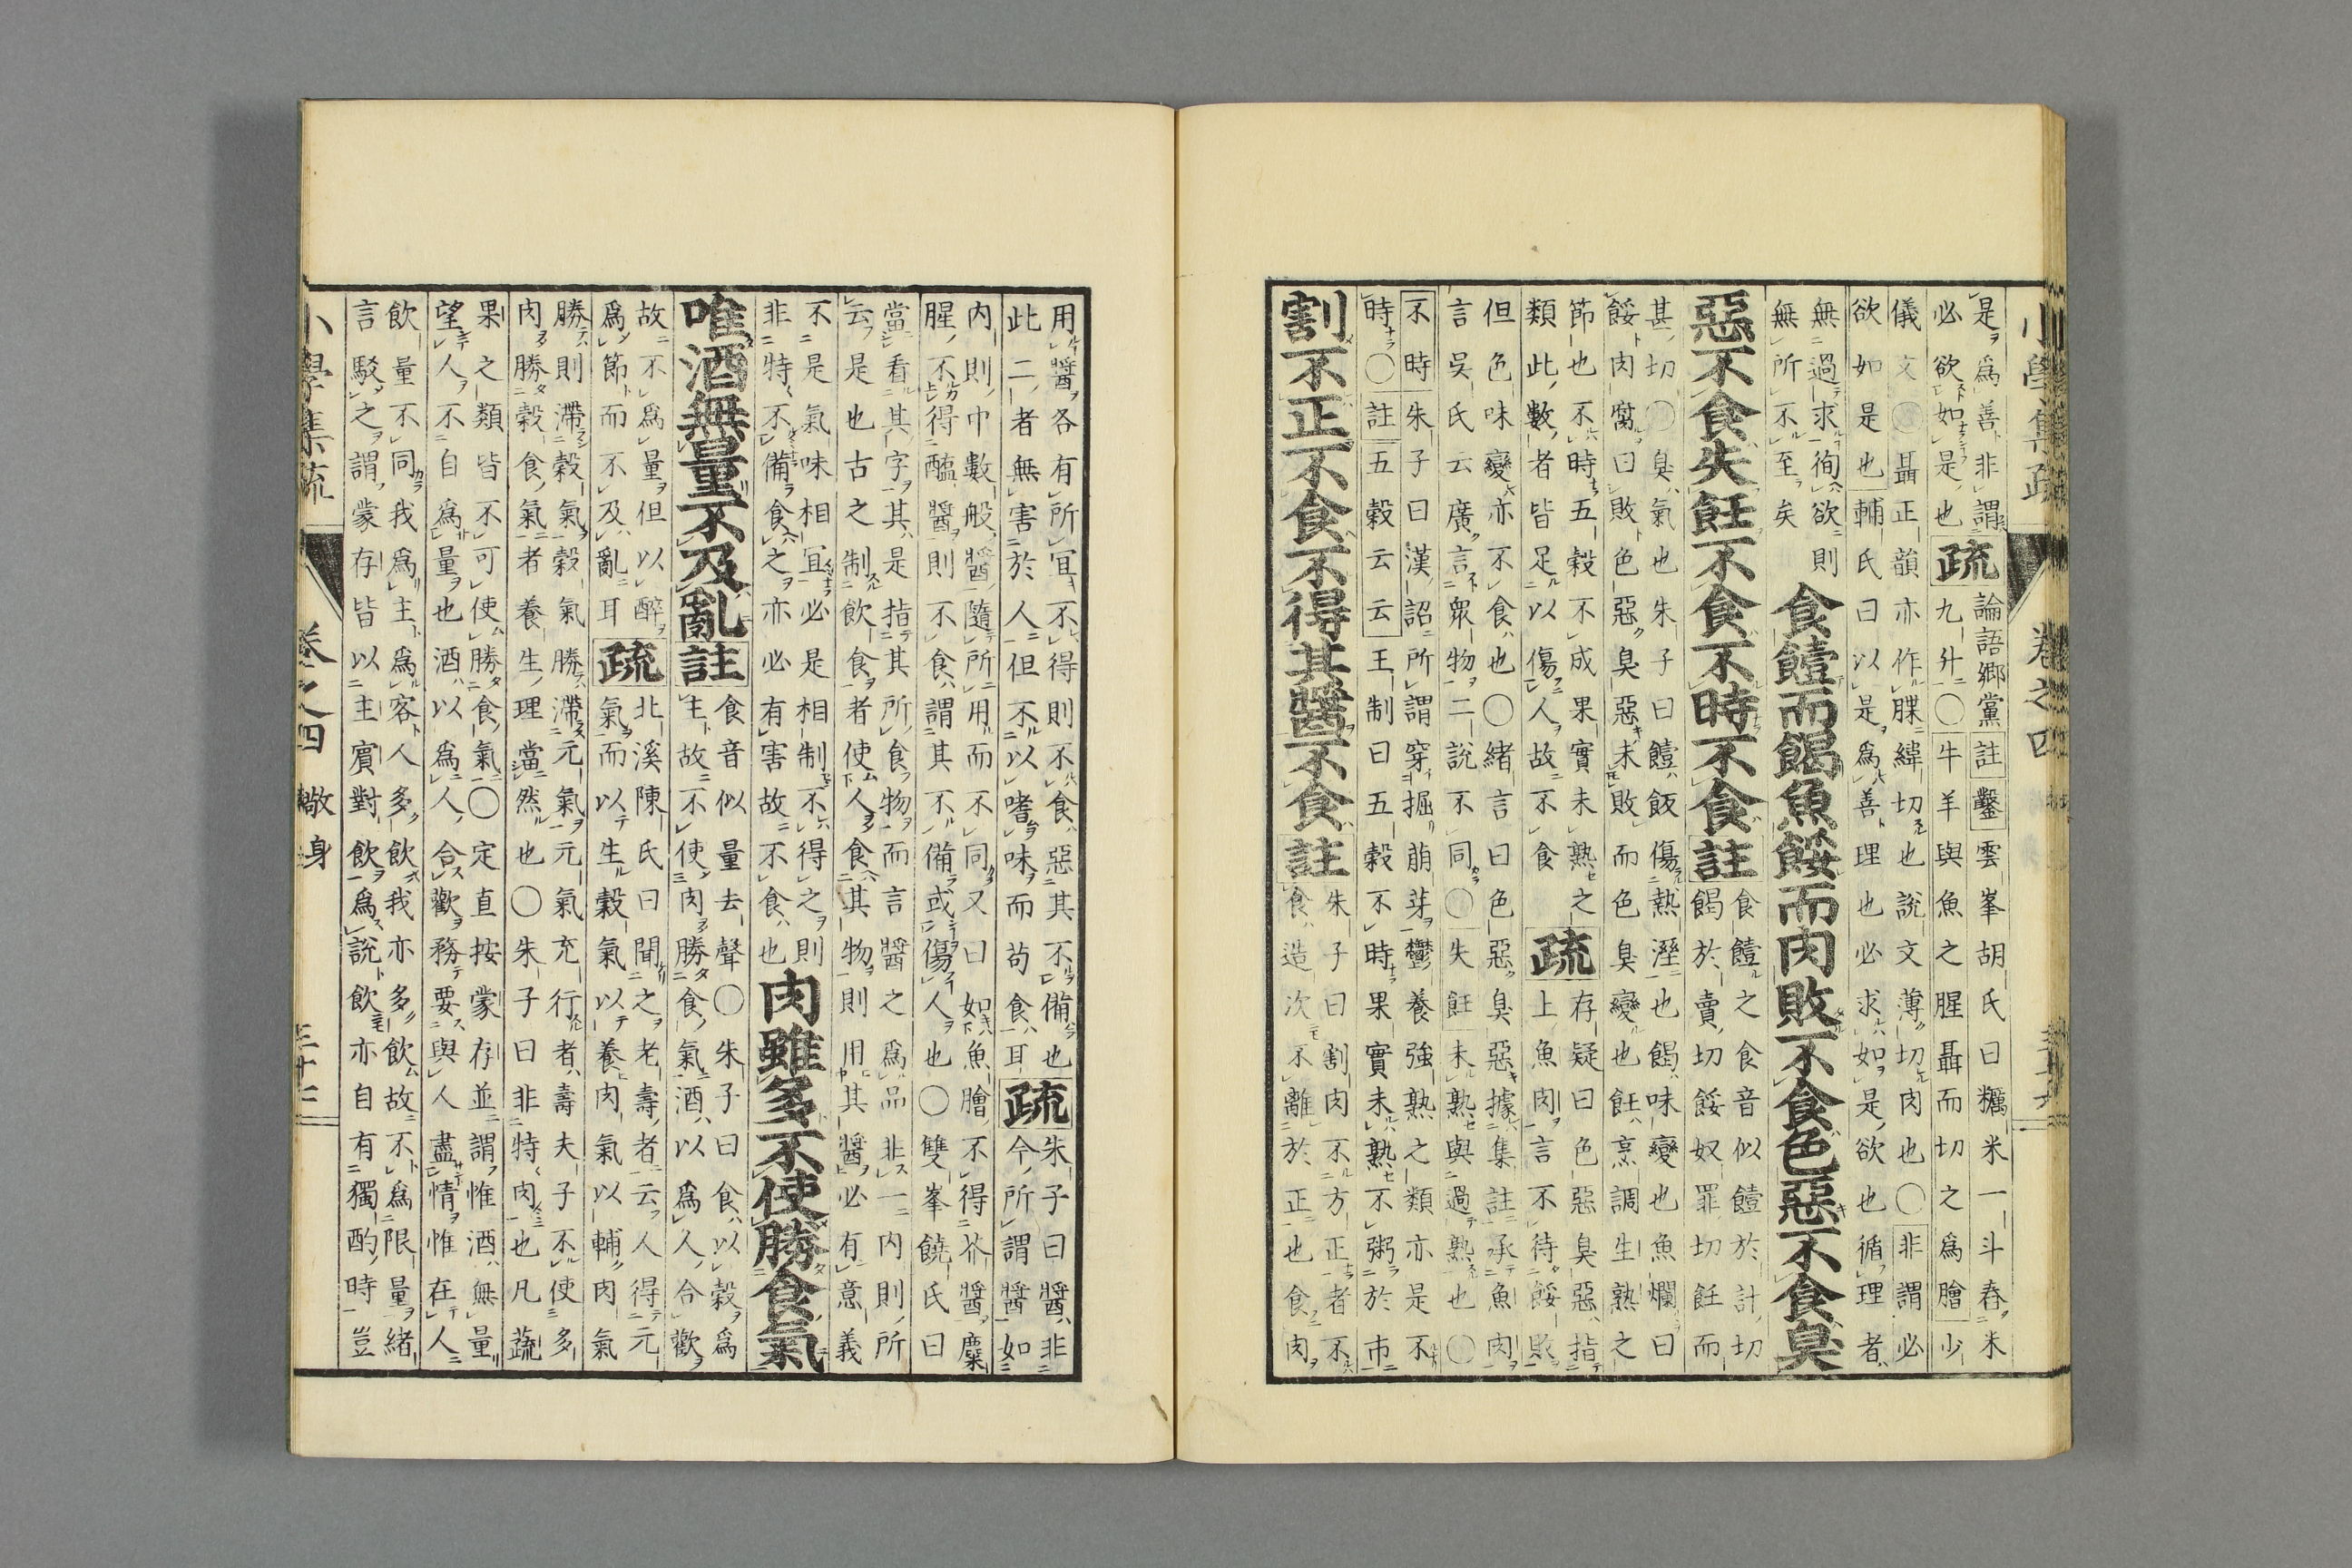 是為善非謂疏論語鄉黨註鑿雲峯胡氏曰糲米一斗舂米
必欲如是也九升〇牛羊與魚之腥聶而切之為膾少
儀文〇聶正韻亦作牒緯切也說文薄切肉也〇非謂必
欲如是也輔氏曰以是為善理也必求如是欲也循理者
無過求徇欲則
無所不至矣
食饐而餲魚餒而肉敗不食色惡不食臭
惡不食失飪不食不時不食註
食饐之食音似饐於計切
餲於賣切餒奴罪切飪而
甚切〇臭氣也朱子曰饐飯傷熱溼也餲味變也魚爛曰
餒肉腐曰敗色惡臭惡未敗而色臭變也飪烹調生熟之
節也不時五穀不成果實未熟之
類此數者皆足以傷人故不食
疏
存疑曰色惡臭惡指
上魚肉言不待餒敗
但色味變亦不食也〇緒言曰色惡臭惡據集註承魚肉
言吳氏云廣言衆物二說不同〇失飪未熟與過熟也〇
不時朱子曰漢詔所謂穿掘萠芽鬱養強熟之類亦是不
時〇註五穀云云王制曰五穀不時果實未熟不粥於市
割不正不食不得其醬不食註
朱子曰割肉不方正者不
食造次不離於正也食肉
用醬各有所宜不得則不食惡其不備也
此二者無害於人但不以嗜味而苟食耳
疏
朱子曰醬非
今所謂醬如
內則中數般醬隨所用而不同又曰如魚膾不得芥醬麋
腥不得醢醬則不食謂其不備或傷人也〇雙峯饒氏曰
當看其字其是指其所食物而言醬之為品非一內則所
云是也古之制飲食者使人食其物則用其醬必有意義
不是氣味相宜必是相制不得之則
非特不備食之亦必有害故不食也
肉雖多不使勝食氣
唯酒無量不及亂註
食音似量去聲〇朱子曰食以穀為
主故不使肉勝食氣酒以為人合歡
故不為量但以醉
為節而不及亂耳
疏
北溪陳氏曰聞之老壽者云人得元
氣而以生穀氣以養肉氣以輔肉氣
勝則滯穀氣穀氣勝滯元氣元氣充行者壽夫子不使多
肉勝穀食氣者養生理當然也〇朱子曰非特肉也凡蔬
果之類皆不可使勝食氣〇定直按蒙存並謂惟酒無量
望人不自為量也酒以為人合歡務要與人盡情惟在人
飲量不同我為主為客人多飲我亦多飲故不為限量緒
言駁之謂蒙存皆以主賓對飲為說飲亦自有獨酌時豈
小學集疏 卷之四 敬身